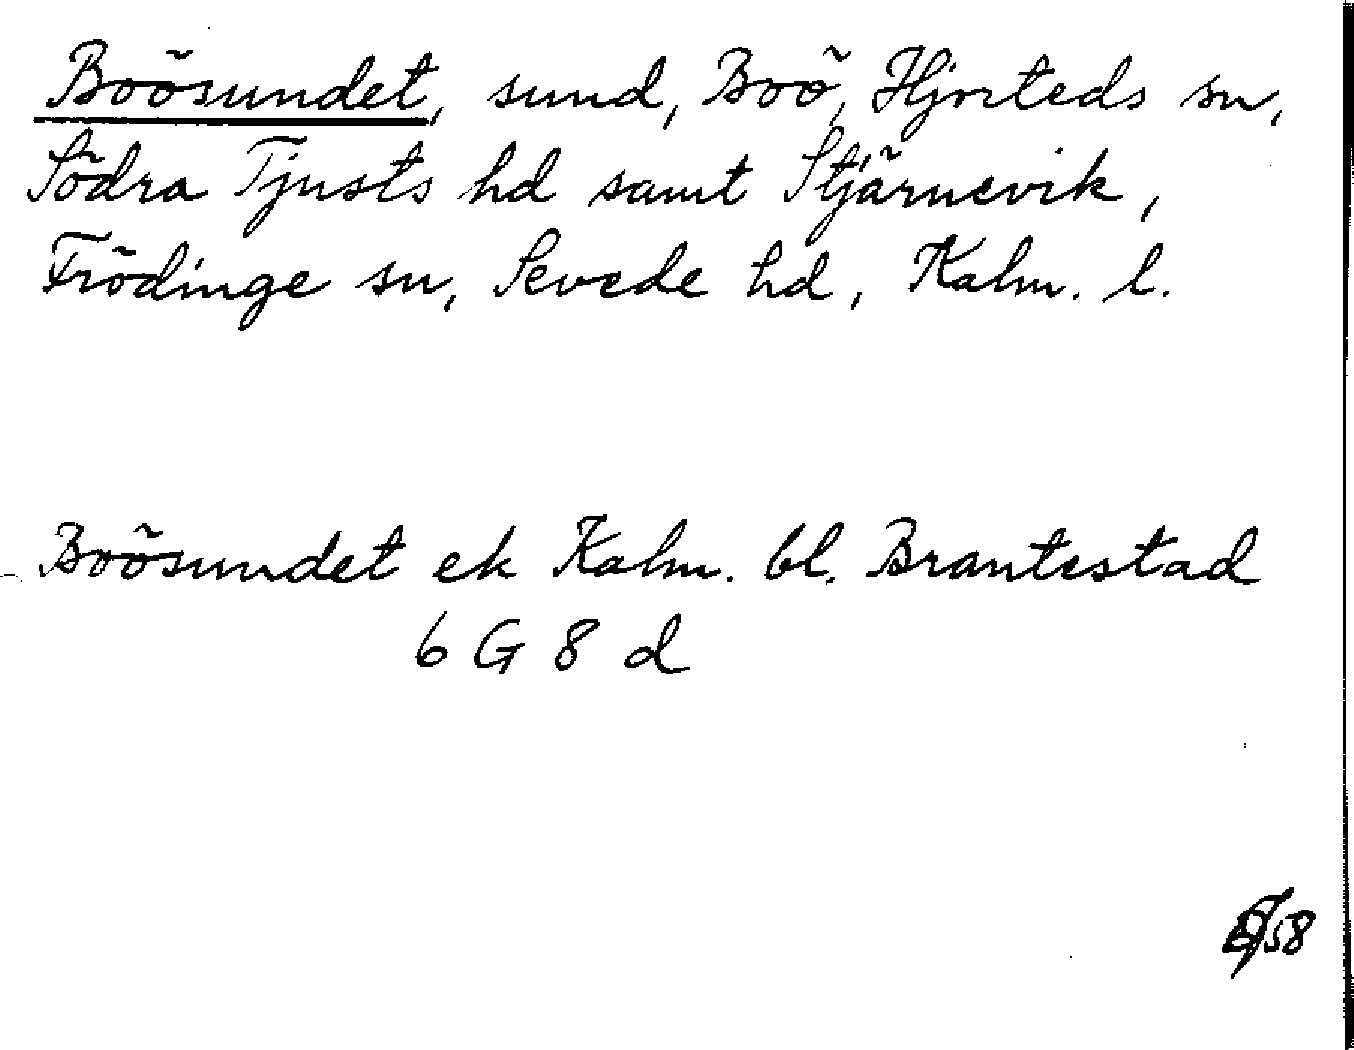 Boösundet, sund, Boö, Hjorteds sn,
Södra Tjusts hd samt Stjärnevik,
Frödinge sn, Sevede hd, Kalm. l.
Boösundet ek Kalm. bl. Brantestad
6 G 8 d
58